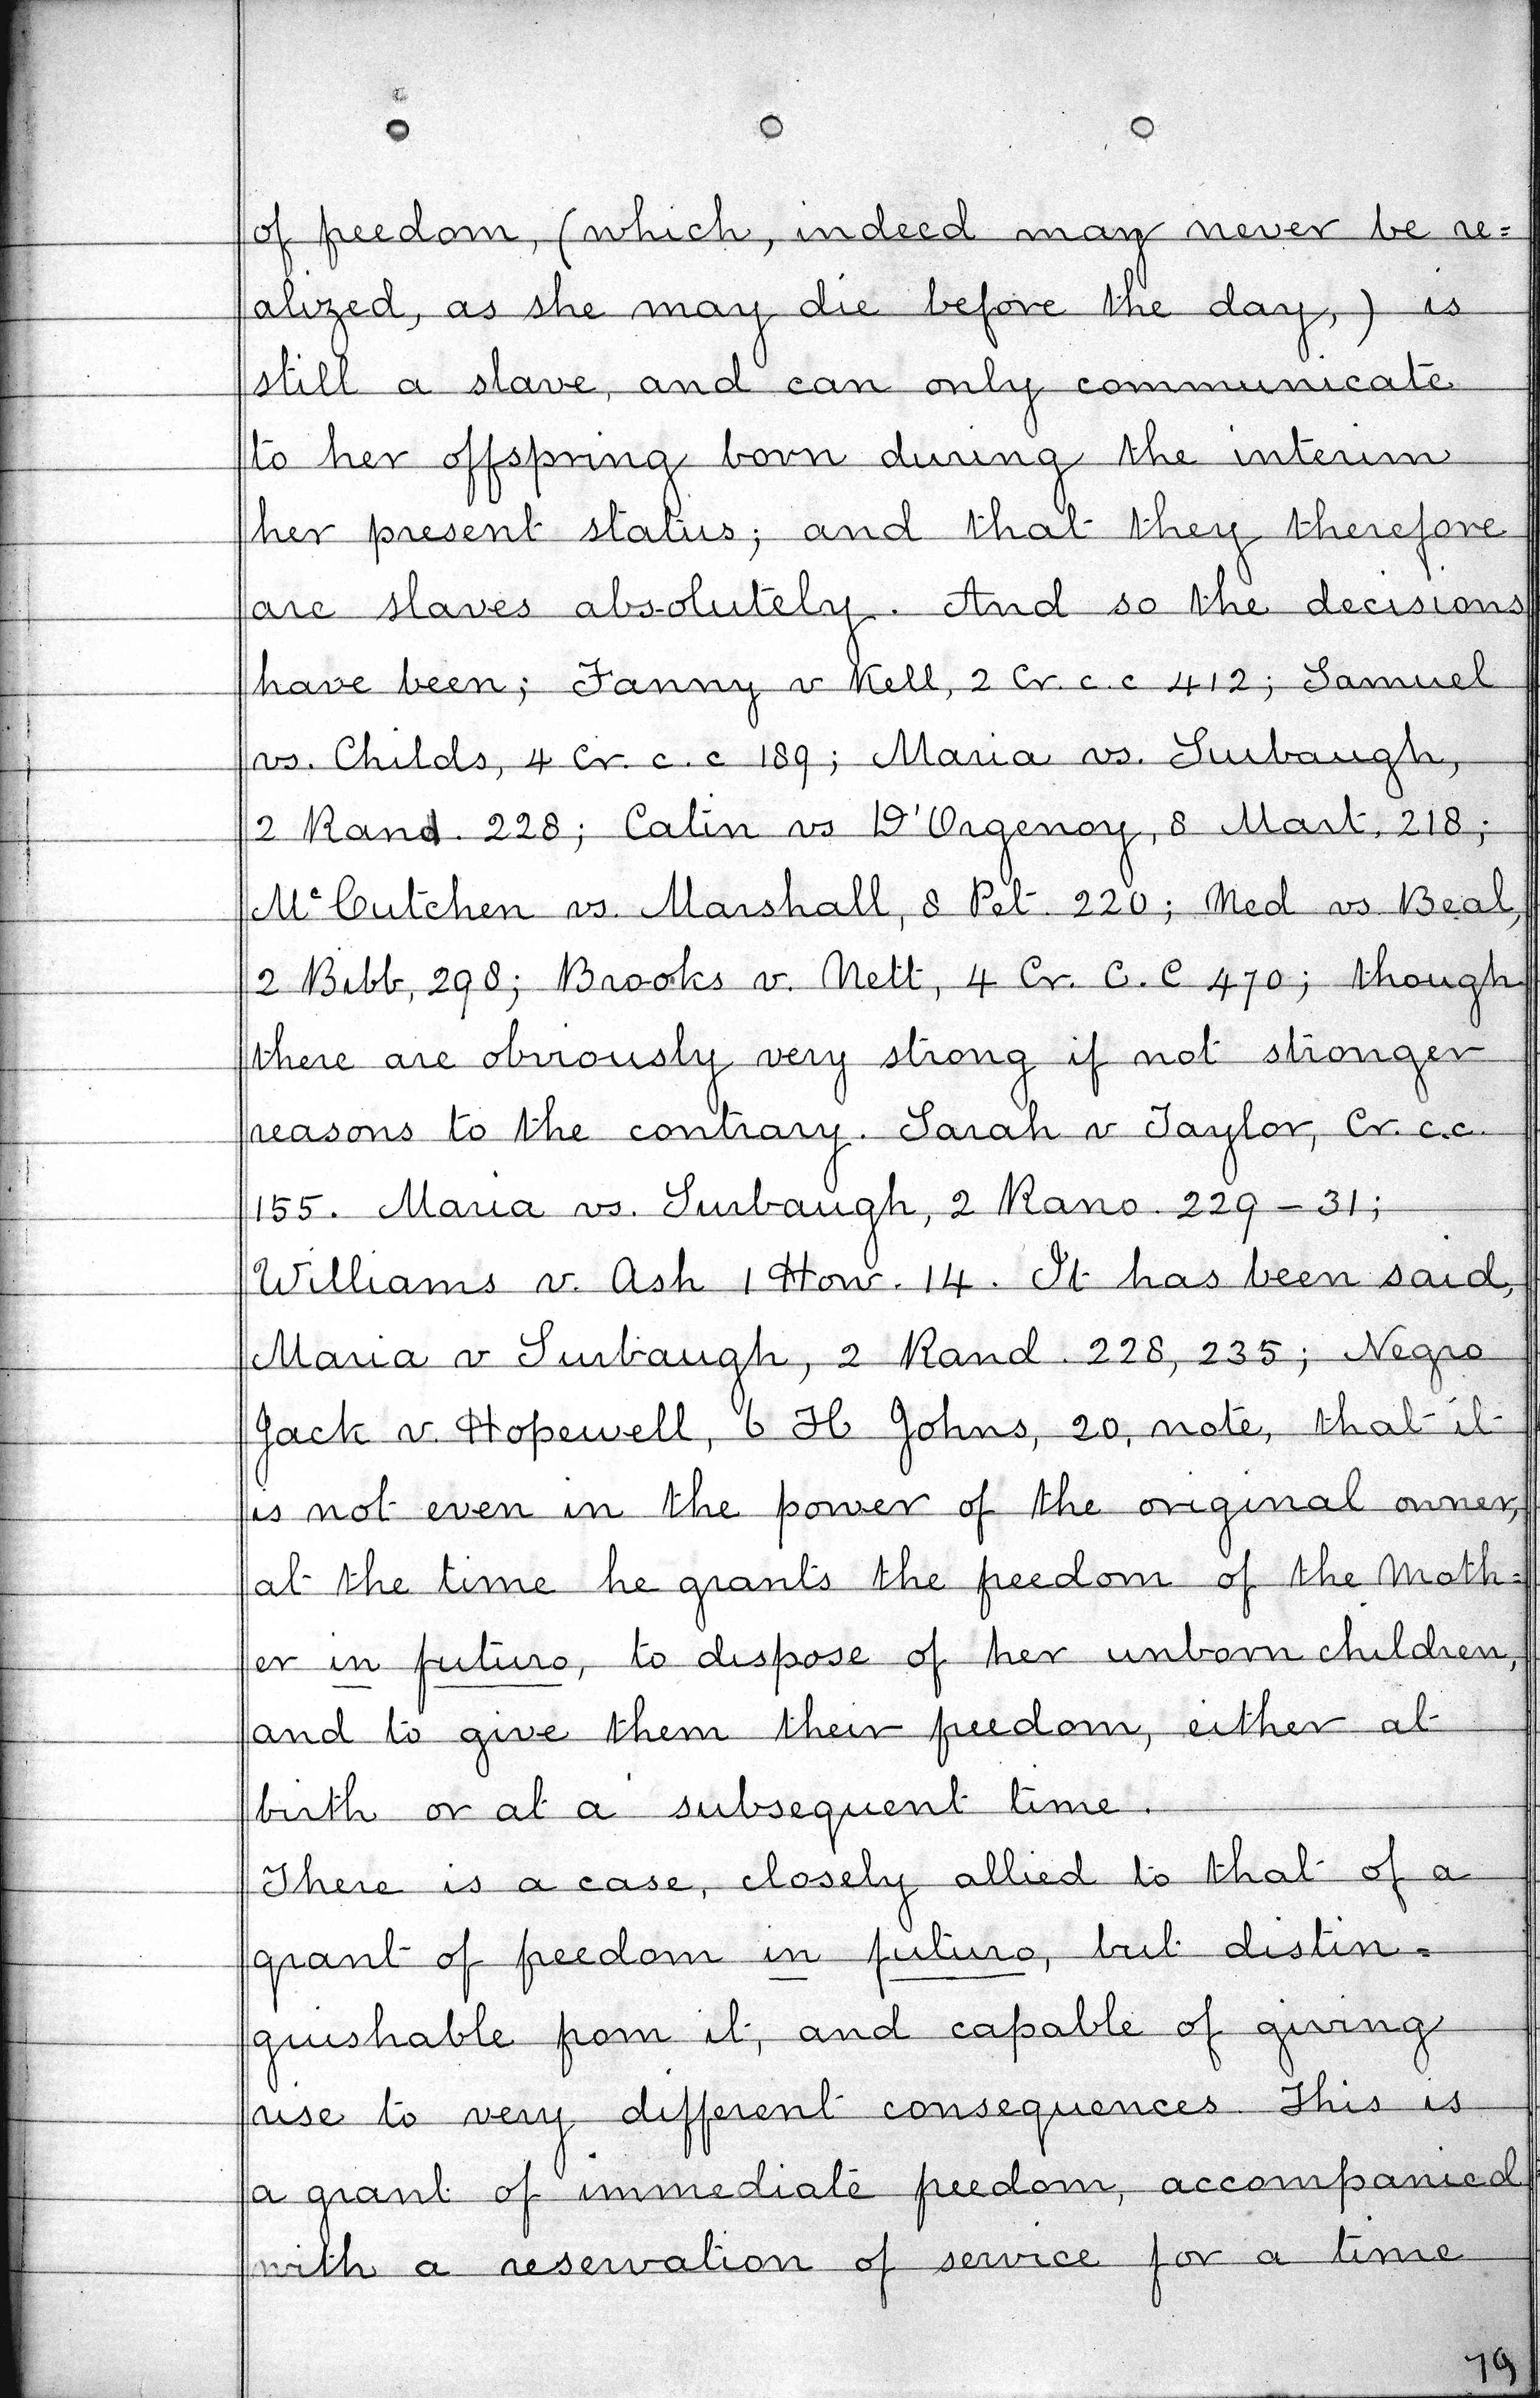 of freedom, (which, indeed may never be re=
alized, as she may die before the day,) is
still a slave, and can only communicate
to her offspring born during the interim
her present status; and that they therefore
are slaves absolutely. And so the decisions
have been; Fanny v Kell, 2 Cr. c. c 412; Samuel
vs. Childs, 4 Cr. c. c 189; Maria vs. Surbaugh,
2 Rand. 228; Catin vs D'Orgenoy, 8 Mart. 218;
McCutchen vs. Marshall, 8 Pet. 220; Ned vs. Beal,
2 Bibb, 298; Brooks v. Nett, 4 Cr. C. C 470; though
there are obviously very strong if not stronger
reasons to the contrary. Sarah v Taylor, Cr. c.c.
155. Maria vs. Surbaugh, 2 Rano. 229 – 31;
Williams v. Ash 1 How. 14. It has been said,
Maria v Surbaugh, 2 Rand. 228, 235; Negro
Jack v. Hopewell, 6 H Johns, 20, note, that it
is not even in the power of the original owner,
at the time he grants the freedom of the Moth=
er in futuro, to dispose of her unborn children,
and to give them their freedom, either at
birth or at a subsequent time.
There is a case, closely allied to that of a
grant of freedom in futuro, but distin=
guishable from it, and capable of giving
rise to very different consequences. This is
a grant of immediate freedom, accompanied
with a reservation of service for a time
79